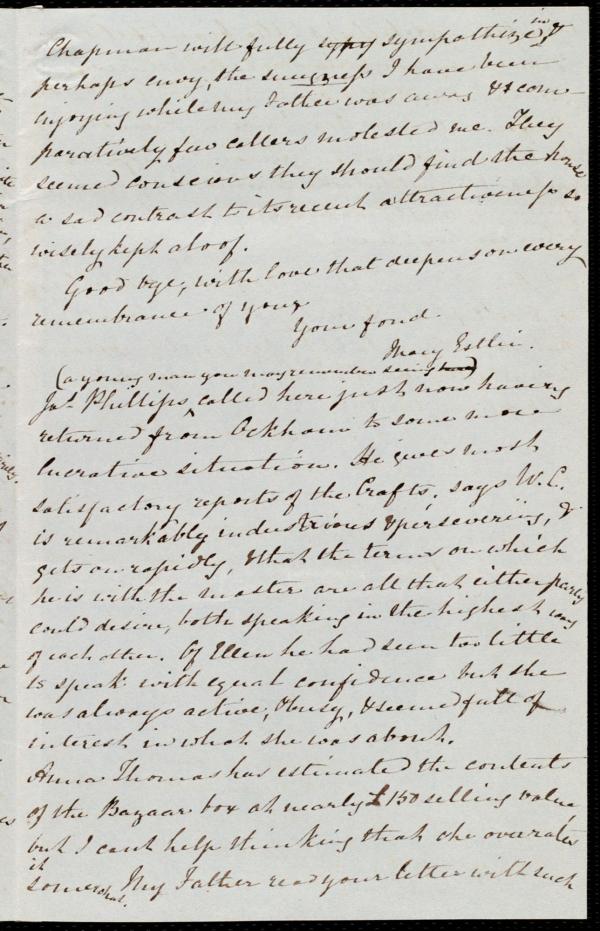 Chapman will fully sympathize in, &
perhaps envy, the snugness I have been
enjoying while my Father was away & com-
paratively few callers molested me. They
seemed conscious they should find the house
a sad contrast to its recent attractiveness so
wisely kept aloof.
Good bye, with love that deepens on every
remembrance of you,
Your fond.
Mary Estlin.
(a young man you may remember seeing here)
Jas. Phillips, called here just now having
returned from Ockham to some more
lucrative situation. He gives most
satisfactory reports of the Crafts, says W.C.
is remarkably industrious & persevering, &
gets on rapidly, & that the terms on which
he is with the master are all that either party
could desire, both speaking in the highest way
of each other. Of Ellen he had seen too little
to speak with equal confidence but she
was always active, & busy, & seemed full of
interest in what she was about.
Anna Thomas has estimated the contents
of the Bazaar box at nearly £150 selling value
but I cant help thinking that she overrates
it
somewhat. My Father read your letter with such